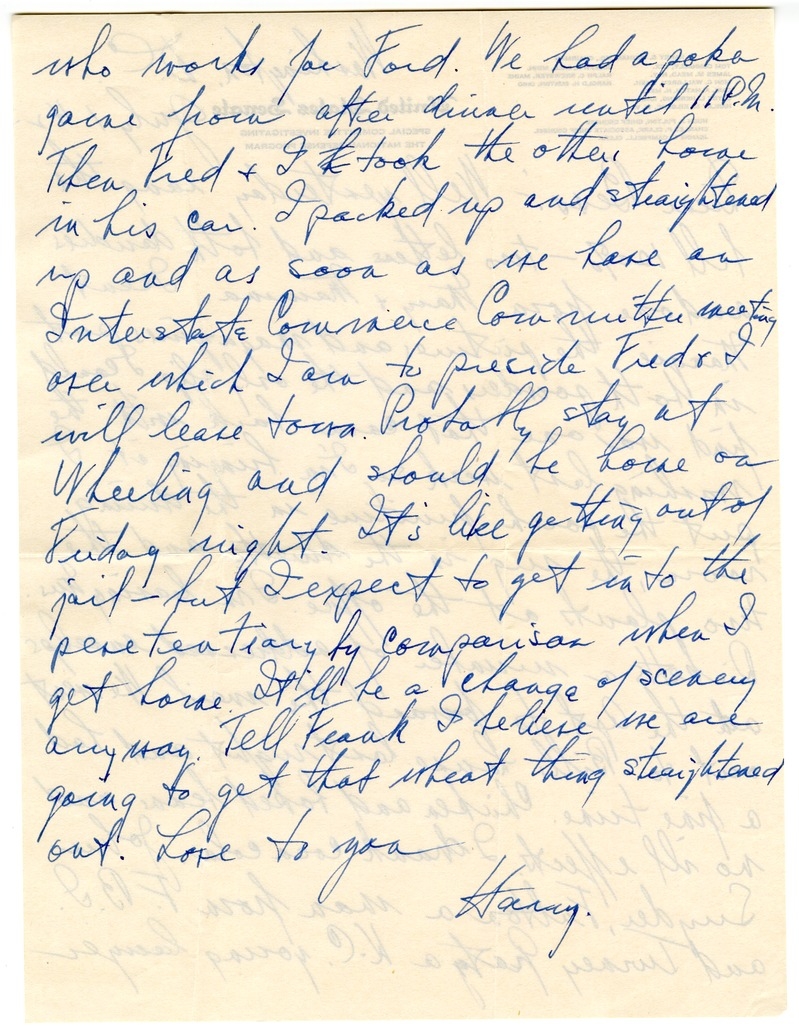 who works for Ford. We had a poker
game from after dinner until 11 P.M.
Then Fred & I took the others home
in his car. I packed up and straightened
up and as soon as we have an
Interstate Commerce Committee meeting
over which I am to preside Fred & I
will leave town. Probably stay at
Wheeling and should be home on
Friday night. It's like getting out of
jail – but I expect to get into the
penetentiary by comparison when I
get home. It'll be a change of scenery
anyway. Tell Frank I believe we are
going to get that wheat thing straightened
out. Love to you
Harry.